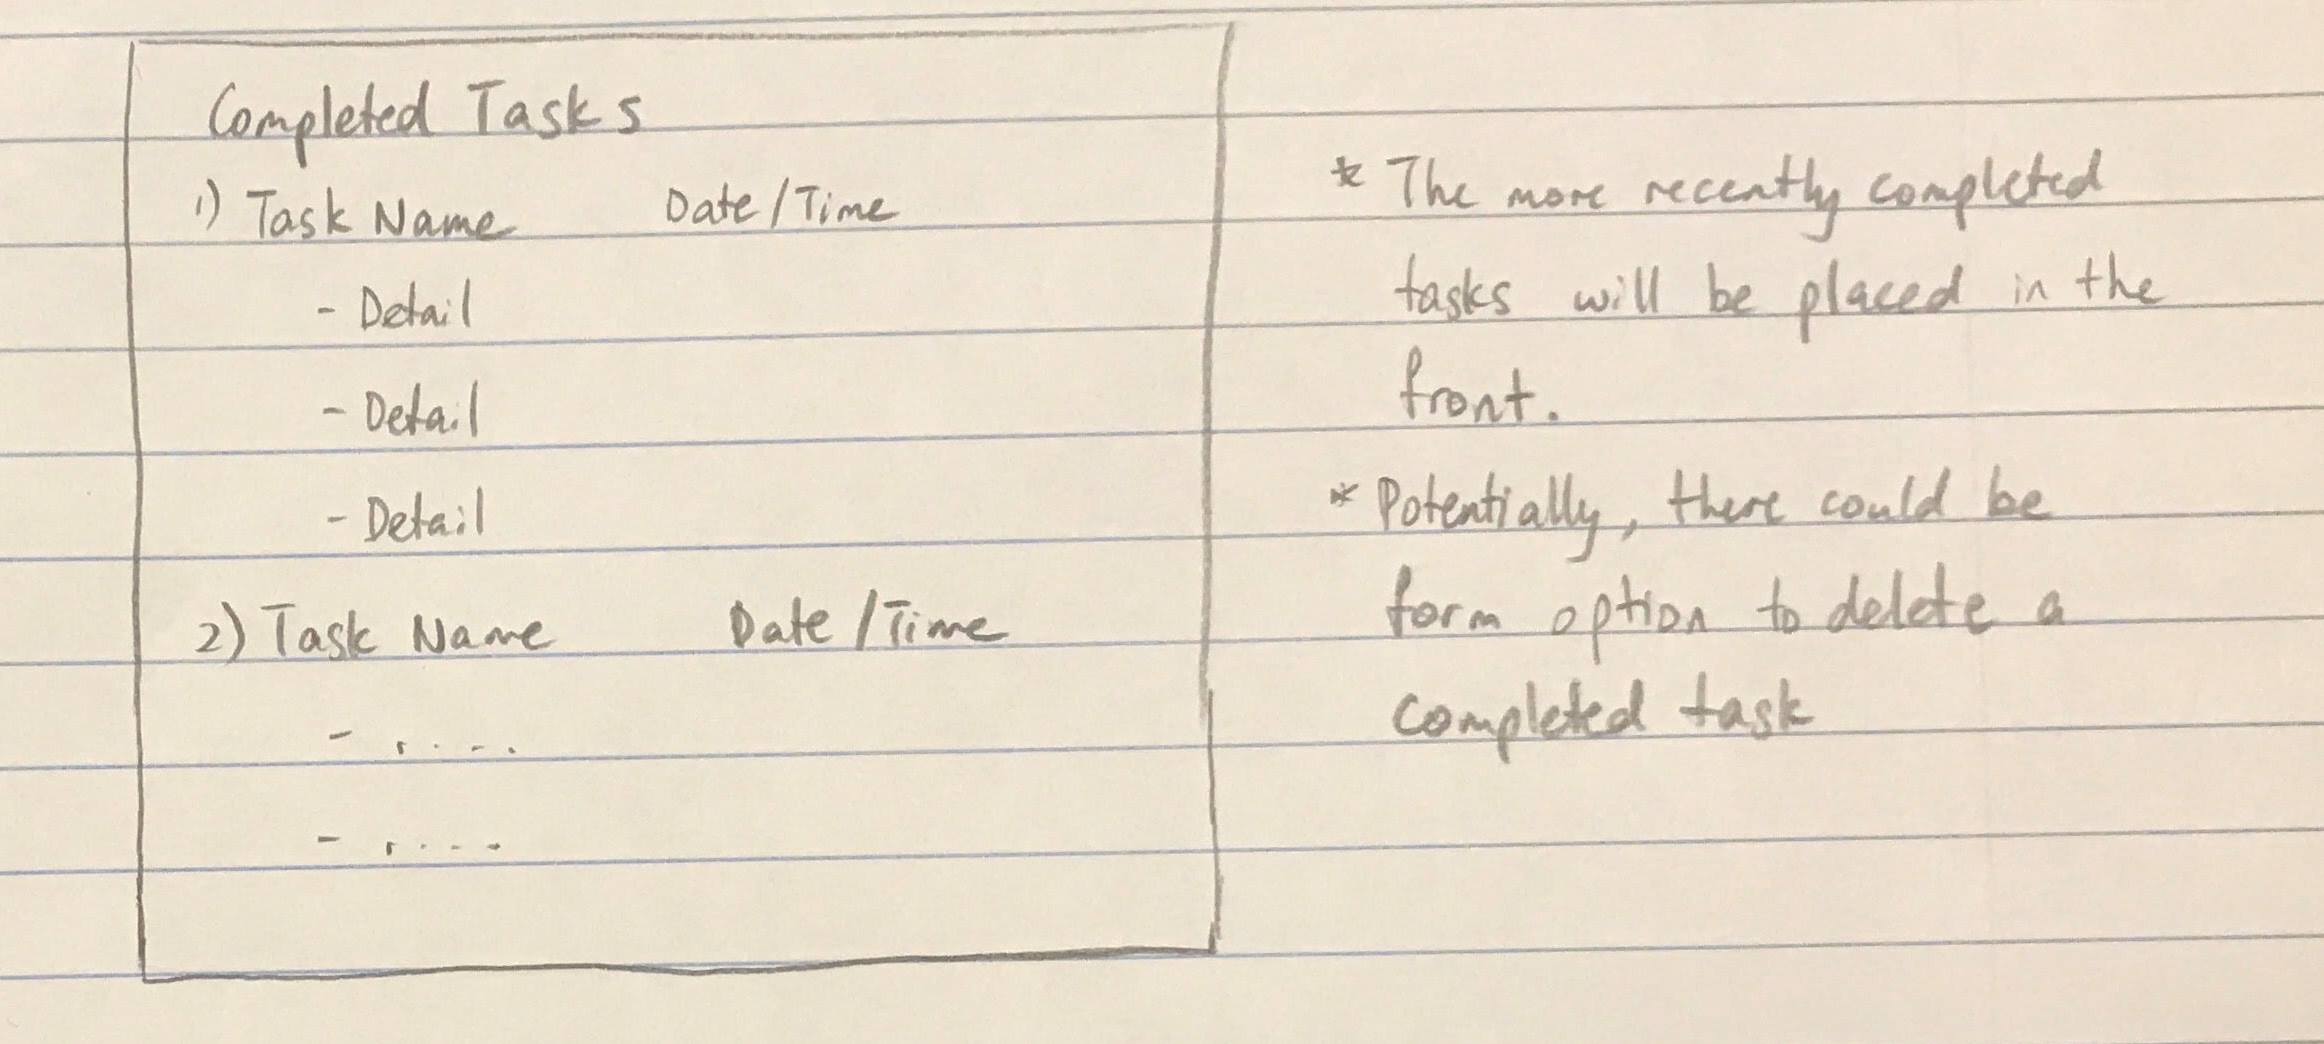 Completed Tasks
1) Task Name Date/Time
- Detail
- Detail
- Detail
2) Task Name Date/Time
- .....
- .....
* The more recently completed
tasks will be placed in the
front.
* Potentially, there could be
form option to delete a
completed task